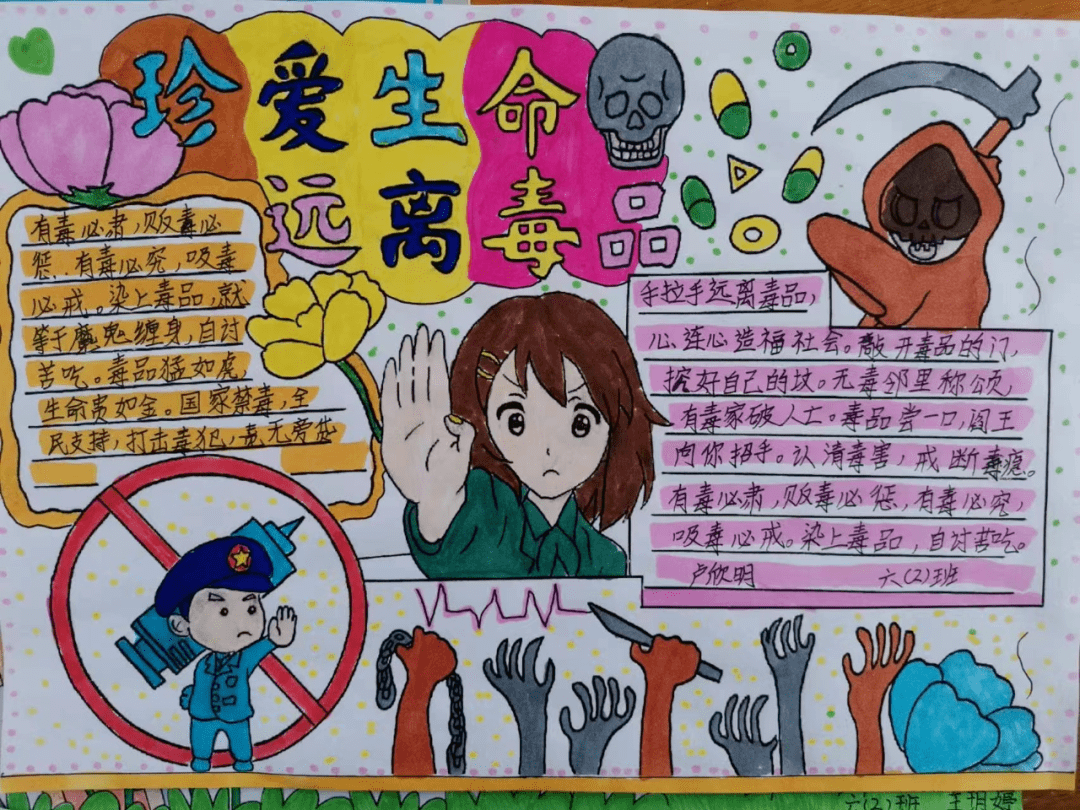 珍爱生命
远离毒品
有毒必肃，贩毒必
惩..有毒必究，吸毒
必戒。染上毒品，就
等于魔鬼缠身，自讨
苦吃。毒品猛如虎，
生命贵如金。国家禁毒，全
民支持，打击毒犯，责无旁贷
手拉手远离毒品，
心连心造福社会。敲开毒品的门，
挖好自己的坟。无毒邻里称颂，
有毒家破人亡。毒品尝一口，阎王
向你招手。认清毒害，戒断毒瘾。
有毒必肃，贩毒必惩，有毒必究，
吸毒必戒。染上毒品，自讨苦吃。
卢欣明 六(2)班
六(2)班